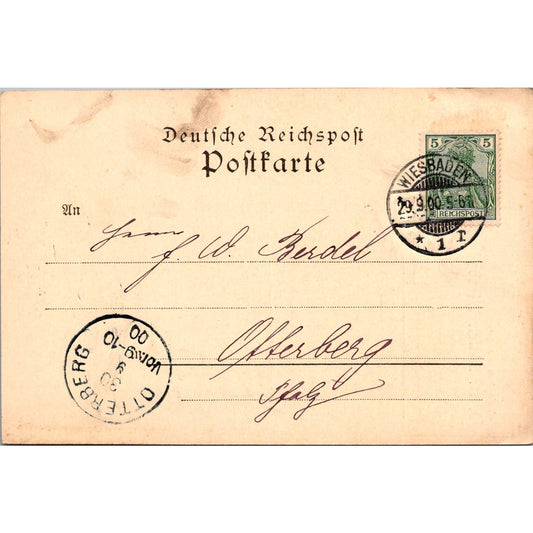 Deutsche Reichspost
Postkarte
5 5
REICHSPOST
WIESBADEN
29.9.00 5-6N
* 1 r
An
Herrn
F. W. Berdel
Otterberg
Pfalz
OTTERBERG
30
9
VORM 9-10
00